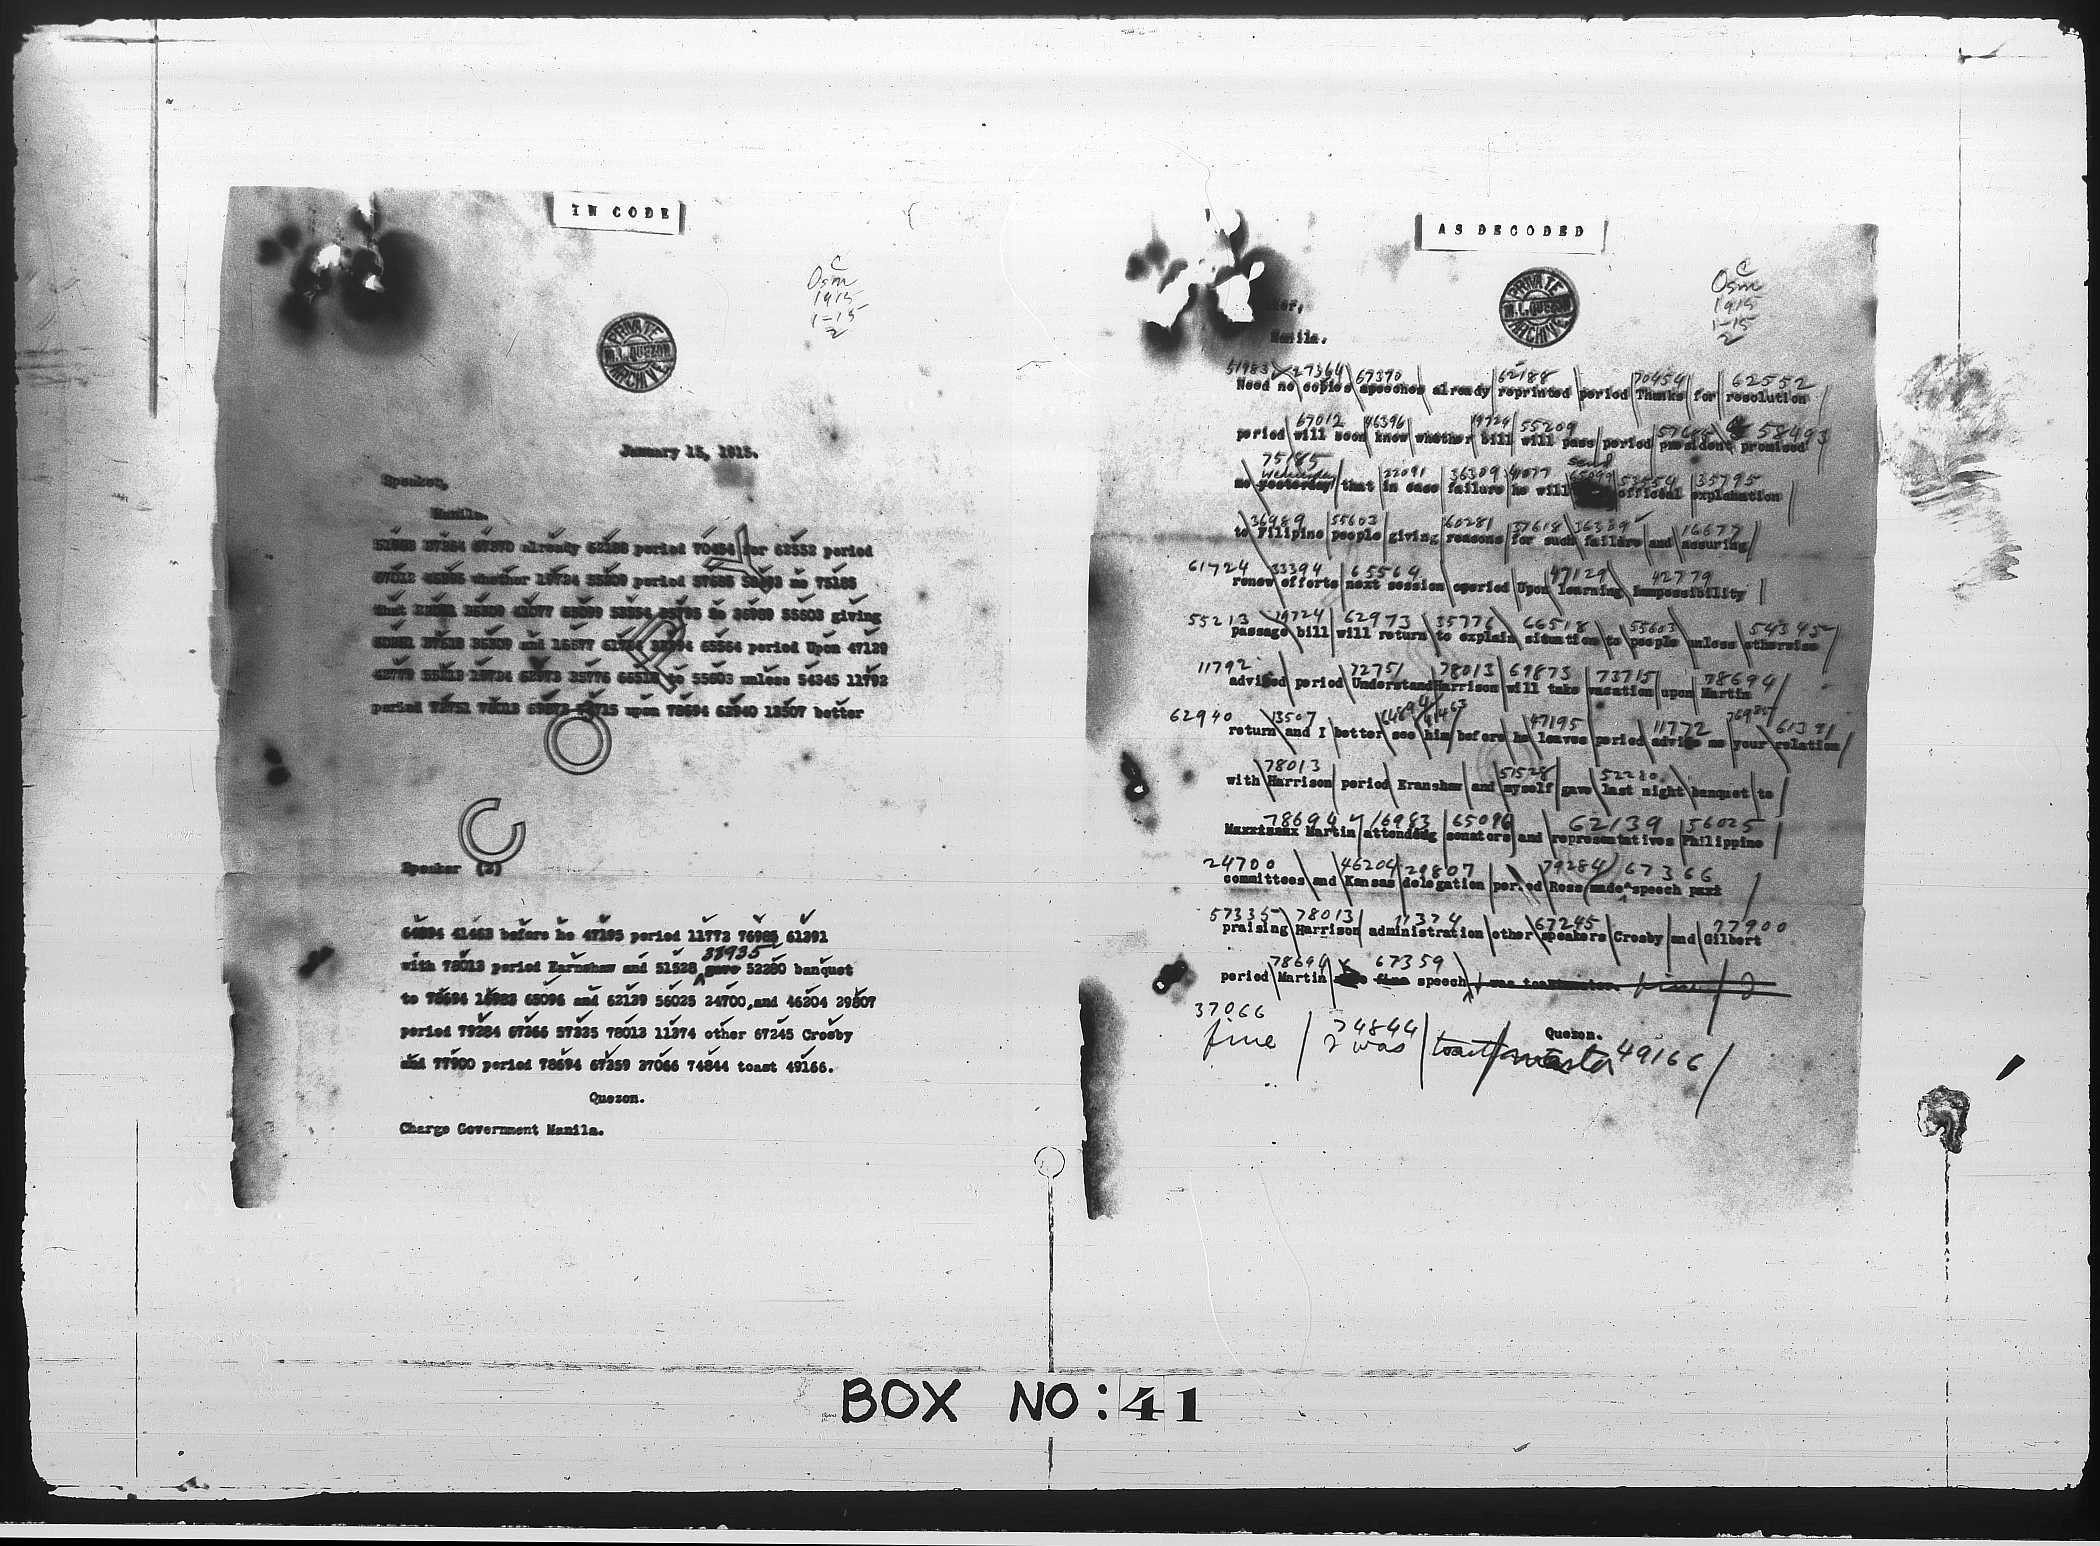 IN CODE
C
Osm
1915
1-15
2
PRIVATE
M.L. QUEZON
ARCHIVE
January 15, 1915.
Speaker,
Manila.
51983 27364 67370 already 62188 period 70454 for 62552 period
67012 46396 whether 19724 55209 period 57686 58493 me 75185
that 22091 36309 41077 65099 53554 35795 to 36989 55603 giving
60281 37618 36309 and 16677 61724 33394 65564 period Upon 47129
42779 55213 19724 62973 35776 66518 to 55603 unless 54345 11792
period 72751 78013 69873 73715 upon 78694 62940 13507 better
COPY
Speaker (2)
64894 41463 before he 47195 period 11772 76985 61391
38935
with 78013 period Earnshaw and 51528 gave 52280 banquet
to 78694 16983 65096 and 62139 56025 24700, and 46204 29807
period 79284 67366 57335 78013 11374 other 67245 Crosby
and 77900 period 78694 67359 37066 74844 toast 49166.
Quezon.
Charge Government Manila.
AS DECODED
C
Osm
1915
1-15
2
PRIVATE
M.L. QUEZON
ARCHIVE
Manila.
51983 27364 67370 62188 70454 62552
Need no copies speeches already reprinted period Thanks for resolution
67012 46396 19724 55209 58493
period will soon know whether bill will pass period president promised
75185 22091 36309 41077 send 65099 53554 35795
Wednesday
me yesterday that in case failure he will official explanation
36989 55603 60281 37618 36339 16677
to Filipino people giving reasons for such failure and assuring
61724 33394 65564 47129 42779
renew efforts next session operiod Upon learning impossibility
55213 19724 62973 35776 66518 55603 54345
passage bill will return to explain situation to people unless otherwise
11792 72751 78013 69873 73715 78694
advised period Understand Harrison will take vacation upon Martin
62940 13507 64894 41463 47195 11772 76985 61391
return and I better see him before he leaves period advise me your relation
78013 51528 52280
with Harrison period Eranshaw and myself gave last night banquet to
78694 16983 65096 62139 56025
Martin attending senators and representatives Philippine
24700 46204 29807 79284 67366
committees and Kansas delegation period Ross made speech
57335 78013 11374 67245 77900
praising Harrison administration other speakers Crosby and Gilbert
78694 67359
period Martin fine speech, I was toastmaster
37066 74844 49166
fine I was toastmaster
Quezon.
BOX NO: 41